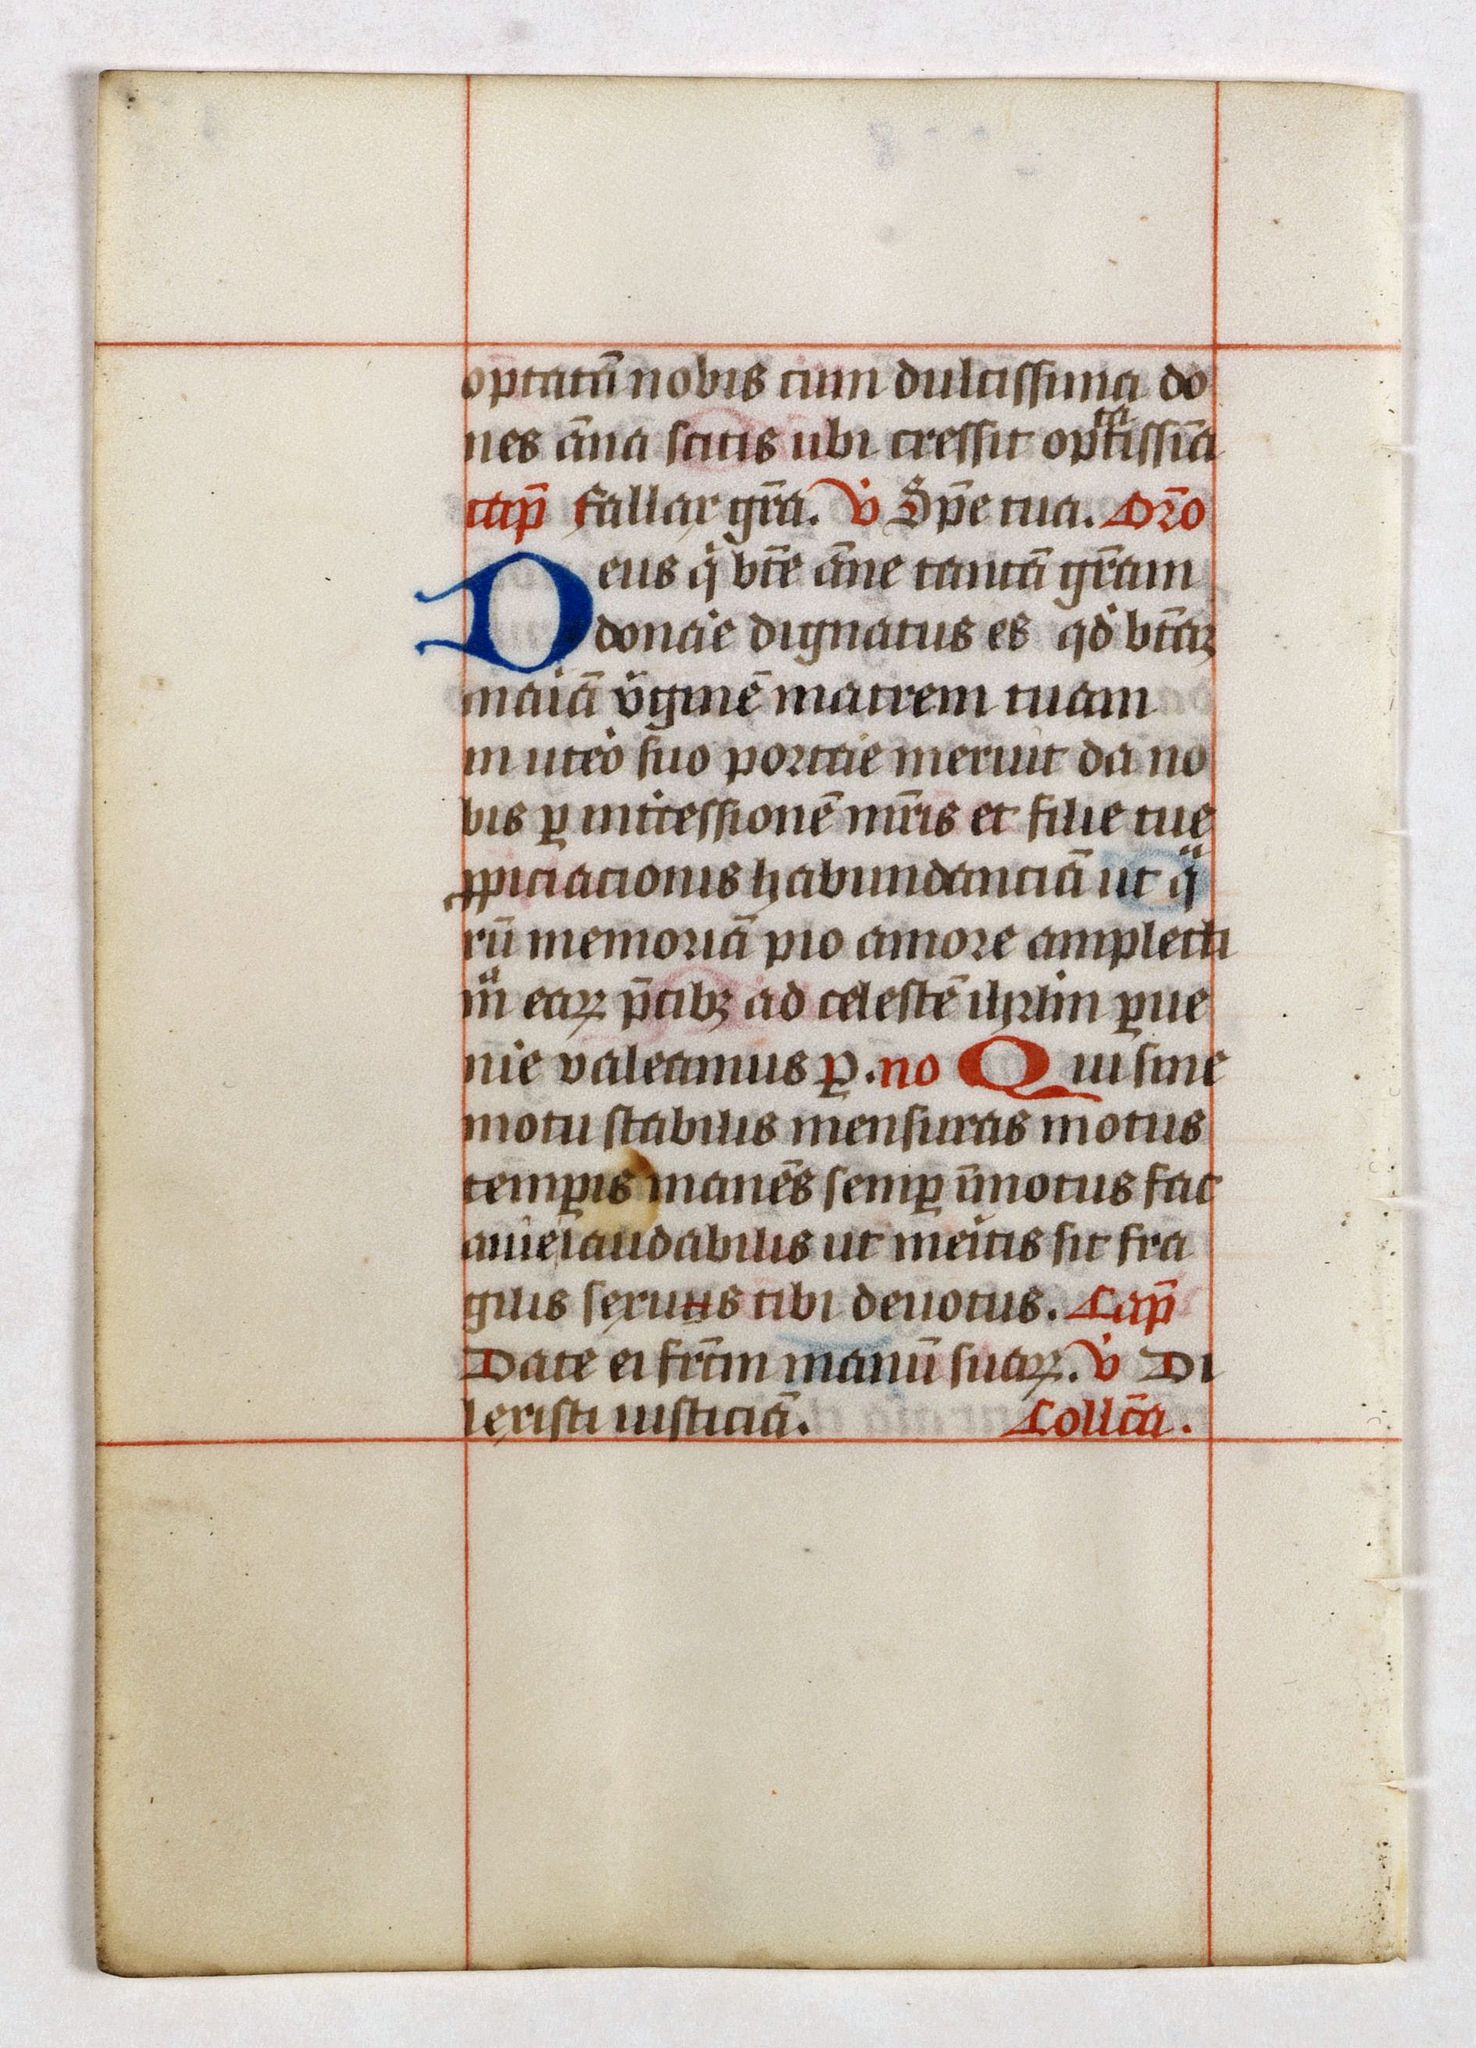 optatū nobis cum dulcissima do
nes āna scitis ubi cressit optatissīa
cap̄ fallax gr̄a. v̇ Sp̄e tua. Or̄o
Deus q̇ bt̄e āne tantā gr̄am
donaͥe dignatus es qd̓ bt̄aꝝ
maͥiā v̓ginē matrem tuam
in uteͦo suo portaͥe meruit da no
bis ꝑ intͥcessionē mr̄is et filie tue
ꝓpiciacionis habundanciā ut qͣ
rū memoriā pio amore amplecti
mͣ eaꝝ p̄cibꝫ ad celestē ihrlm̓ ꝑue
niͥe valeamus ꝑ. no Qui sine
motu stabilis mensuras motus
temꝑis manēs semꝑ īmotus fac
aͥmeͥ laudabilis ut meͥitis sit fra
gilis seruus tibi deuotus. Cap̄
Date ei fr̄cm manuū suaꝝ. v̇ Di
lexisti iusticiā. Collc̄a.